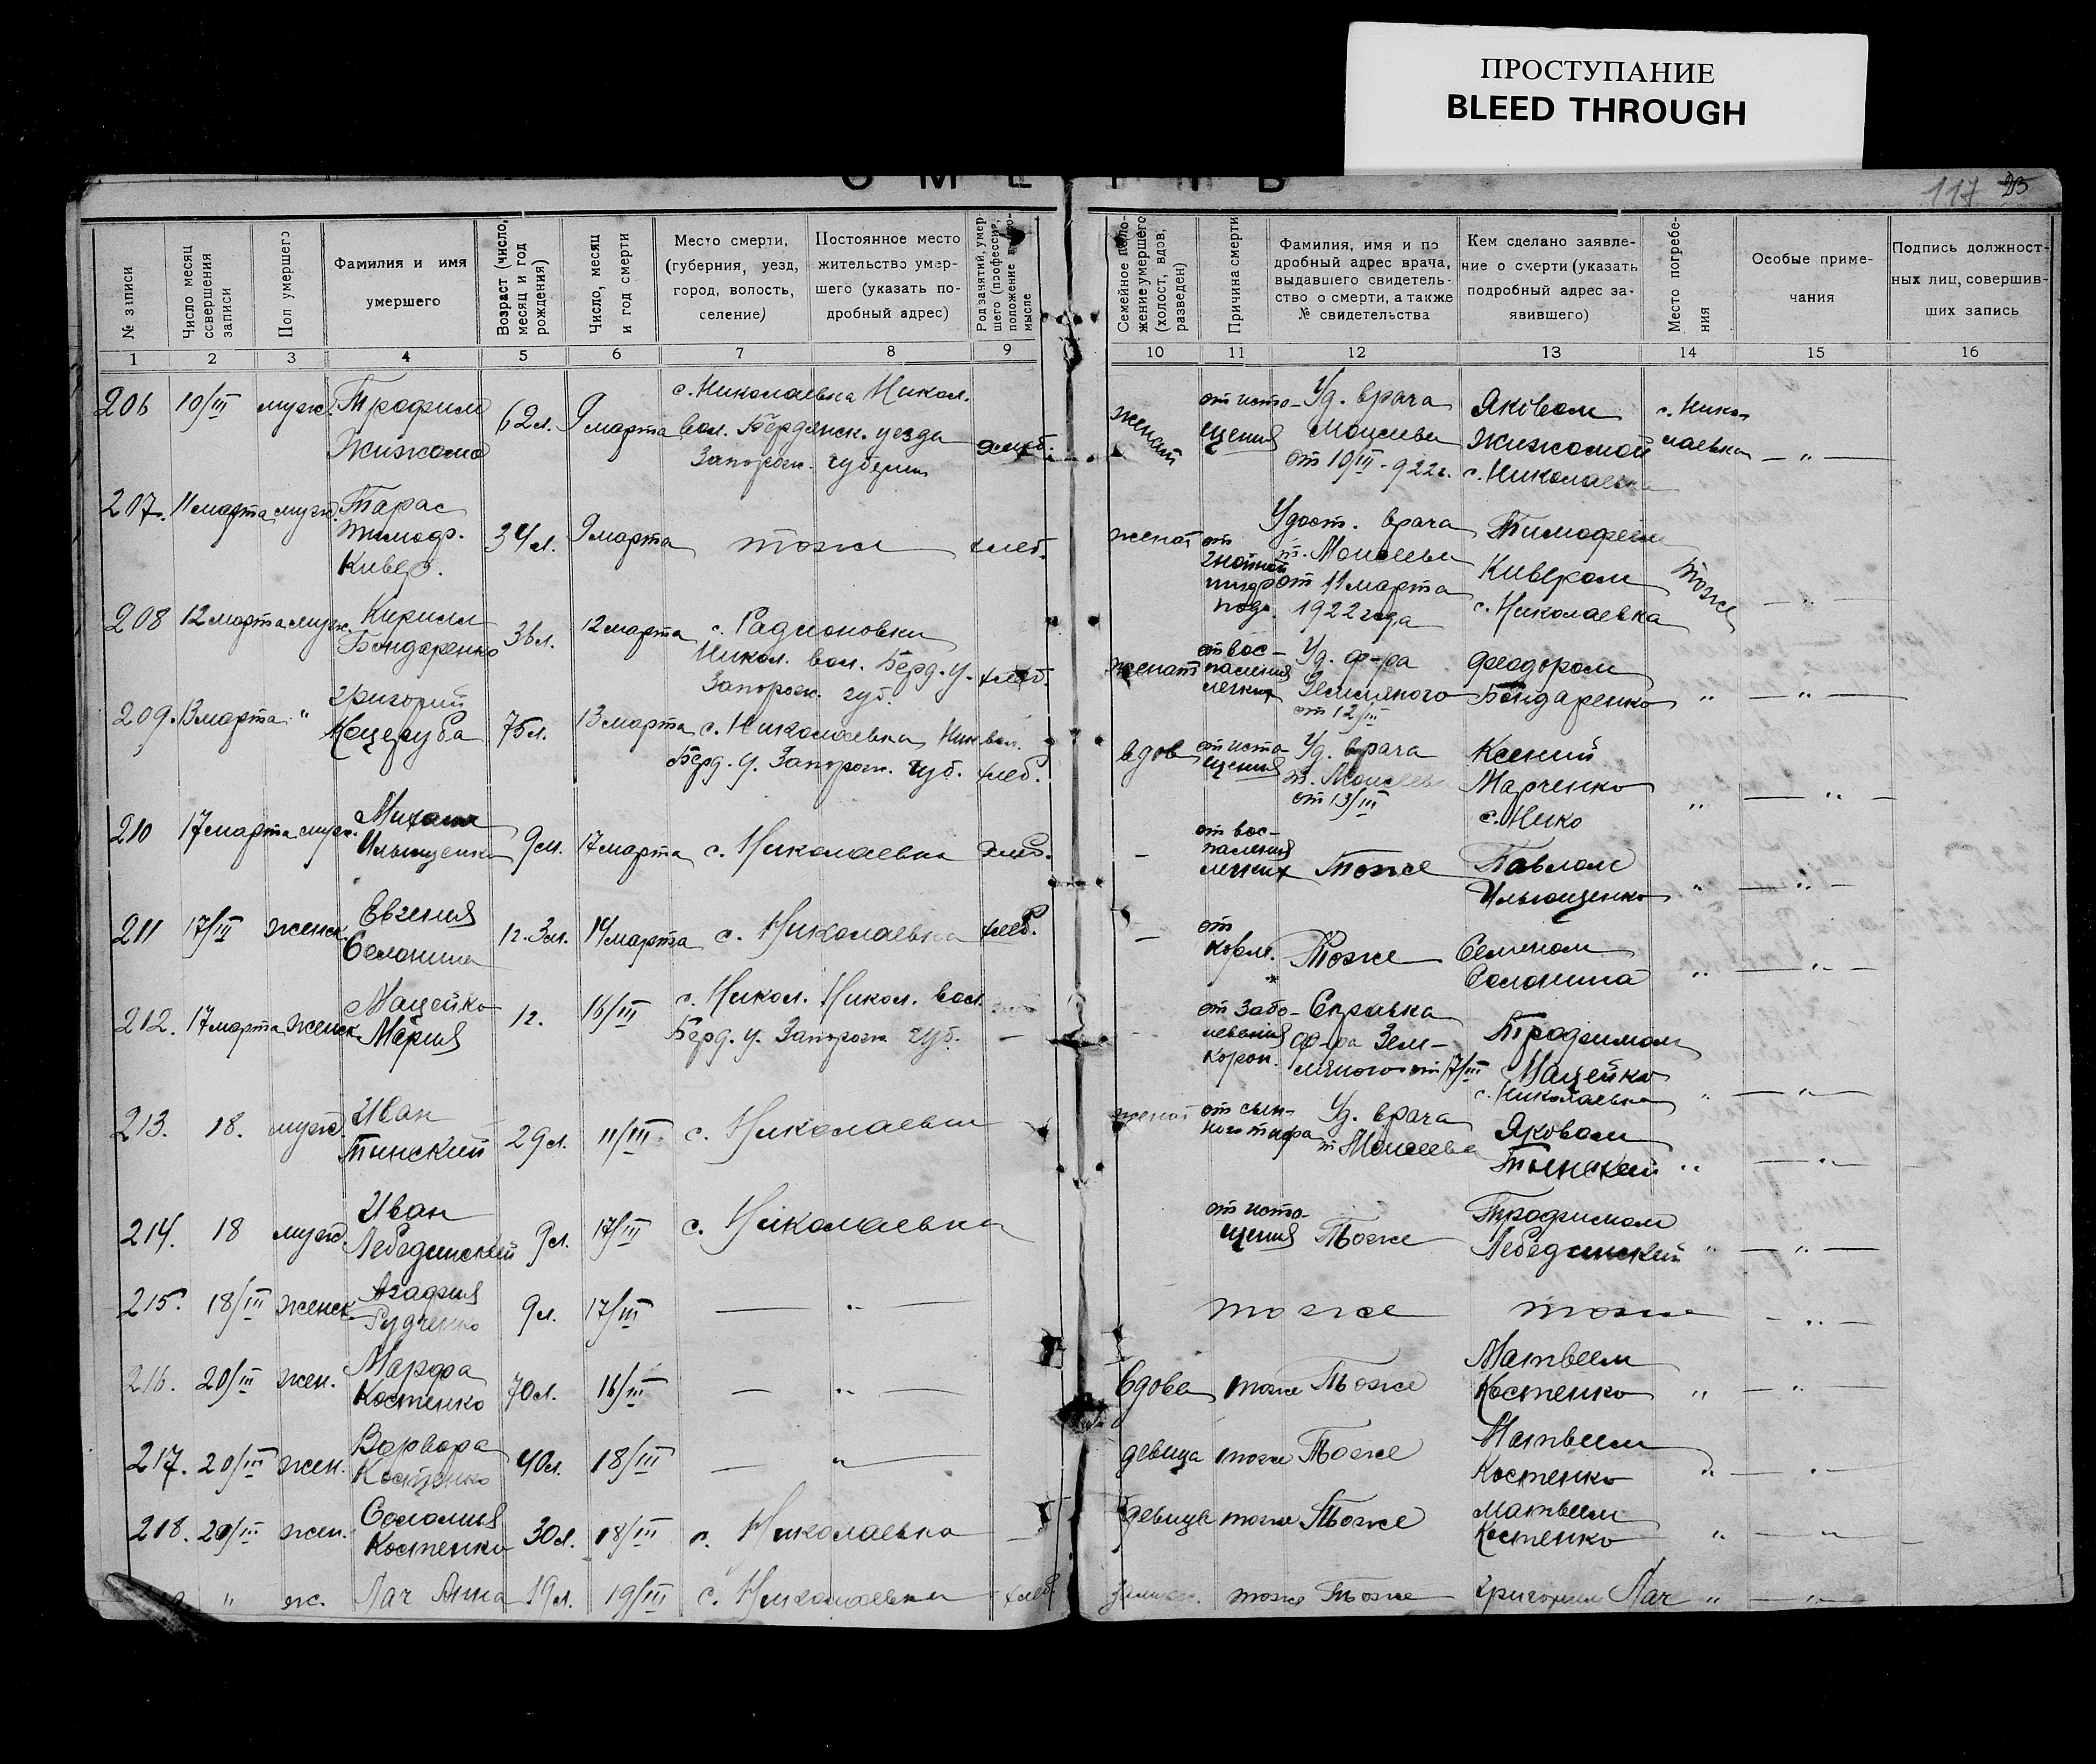 ПРОСТУПАНИЕ
BLEED THROUGH
117 25
№ записи
Число месяц совершения записи
Пол умершего
Фамилия и имя умершего
Возраст (число, месяц и год рождения)
Число, месяц и год смерти
Место смерти, (губерния, уезд, город, волость, селение)
Постоянное место жительство умершего (указать подробный адрес)
Род занятий, умершего (профессия,
Семейное положение умершего (холост, вдов, разведен)
Причина смерти
Фамилия, имя и подробный адрес врача, выдавшего свидетельство о смерти, а также № свидетельства
Кем сделано заявление о смерти (указать подробный адрес заявившего)
Место погребения
Особые примечания
Подпись должностных лиц, совершивших запись
1 2 3 4 5 6 7 8 9 10 11 12 13 14 15 16
206 10/III мужс. Трофим Жижома 62л. 9 марта с. Николаевка Никол. вол. Бердянск. уезда Запорож. губернии хлеб. женат от истощения Уд. врача Моисеева от 10/III-922г. Яковом Жижомой с. Николаевка с. Николаевка — " —
207. 11 марта мужс. Тарас Тимоф. Кивер. 34л. 9 марта тоже хлеб. женат от Удост. врача т. Моисеева от 11 марта 1922 года Тимофеем Кивером с. Николаевка Тоже — " —
208 12 марта мужс. Кирилл Бондаренко 36л. 12 марта с. Радионовка Никол. вол. Берд. у. Запорож. губ. хлеб. женат от воспаления легких Уд. ф-ра Земляного от 12/III Феодором Бондаренко " — " —
209. 13 марта " Григорий Кацеруба 75л. 13 марта с. Николаевка Ник вол. Берд. у. Запорож. губ. хлеб. вдов от истощения Уд. врача т. Моисеева от 13/III Ксенией Марченко с. Нико " — " —
210 17 марта мужс. Михаил Ильющенко 9м. 17 марта с. Николаевка хлеб. — от воспаления легких Тоже Павлом Ильющенко " — " —
211 17/III женск. Евгения Солонина 1г. 3м. 14 марта с. Николаевка хлеб. — от корм. Тоже Семеном Солонина " — " —
212. 17 марта женск Мацейко Мария 1г. 16/III с. Никол. Никол. вол. Берд. у. Запорож. губ. — от заболевания корон. Справка ф-ра Земляного от 17/III Трофимом Мацейко с. Николаевка " — " —
213. 18. мужс. Иван Тинский 29л. 11/III с. Николаевка женат от сыпного тифа Уд. врача т. Моисеева Яковом Тынский " — " —
214. 18 мужс. Иван Лебединский 9л. 17/III с. Николаевка от истощения Тоже Трофимом Лебединский " — " —
215. 18/III женск. Агафия Рудченко 9л. 17/III — " — тоже тоже — " —
216. 20/III жен. Марфа Костенко 70л. 16/III — " — вдова тоже Тоже Матвеем Костенко " — " —
217. 20/III жен. Варвара Костенко 40л. 18/III — " — девица тоже Тоже Матвеем Костенко " — " —
218. 20/III жен. Соломия Костенко 30л. 18/III с. Николаевка — девица тоже Тоже Матвеем Костенко " — " —
" ж. Лач Анна 19л. 19/III с. Николаевка хлеб. тоже Тоже Григорием Лач " — " —